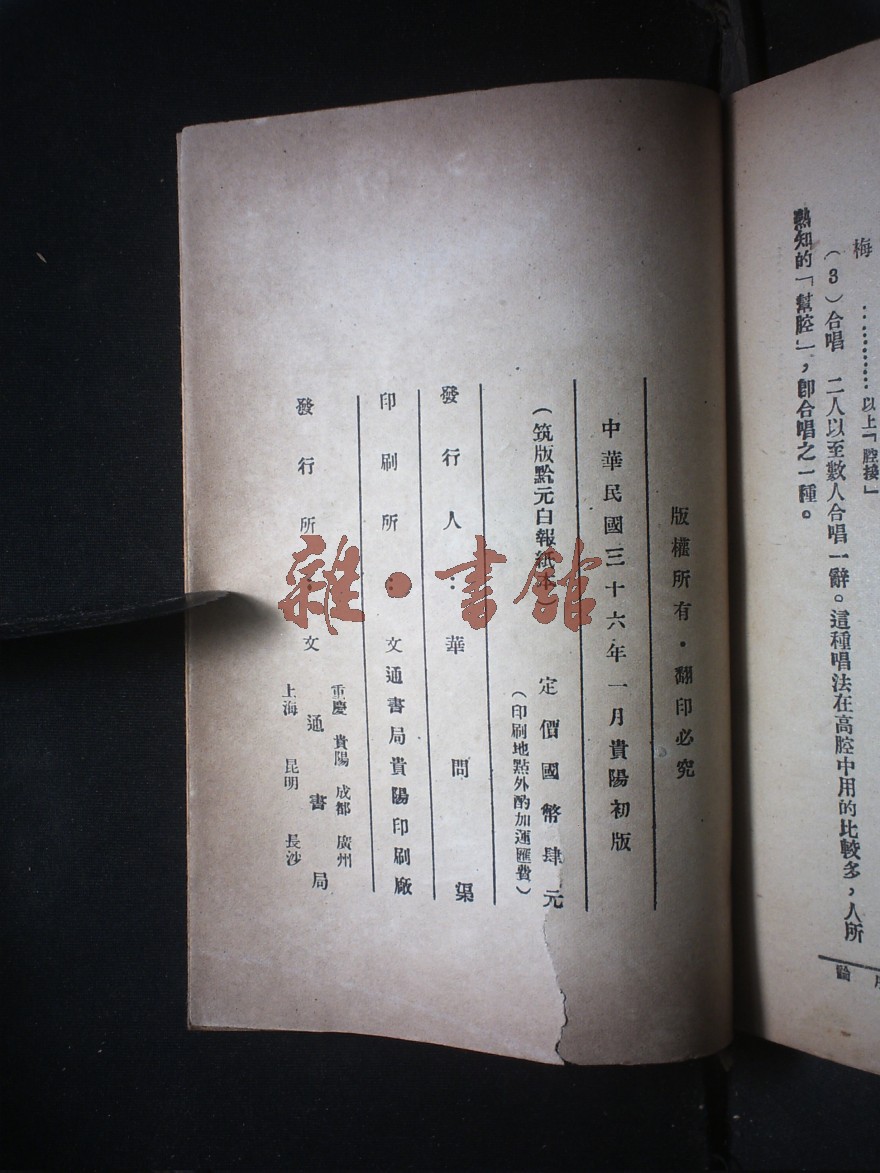 梅 ………… 以上「腔接」
（3）合唱　二人以至數人合唱一辭。這種唱法在高腔中用的比較多，人所
熟知的「幫腔」，卽合唱之一種。
論
版權所有・翻印必究
中華民國三十六年一月貴陽初版
定價國幣肆元
（筑版黔元白報紙本）
（印刷地點外酌加運匯費）
發行人：華問渠
印刷所：文通書局貴陽印刷廠
發行所：文通書局
重慶 貴陽 成都 廣州
上海 昆明 長沙
雜・書館